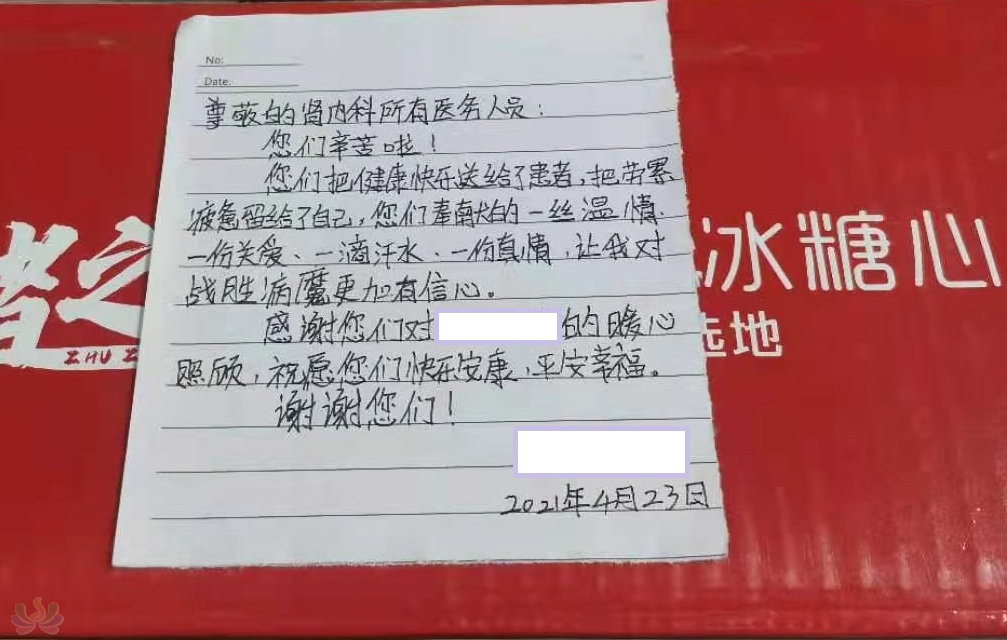 No:
Date.
尊敬的肾内科所有医务人员：
您们辛苦啦！
您们把健康快乐送给了患者，把苦累
疲惫留给了自己，您们奉献的一丝温情、
一份关爱、一滴汗水、一份真情，让我对
战胜病魔更加有信心。
感谢您们对
的暖心
照顾，祝愿您们快乐安康、平安幸福。
谢谢您们！
2021年4月23日
者之
ZHU Z
冰糖心
选地